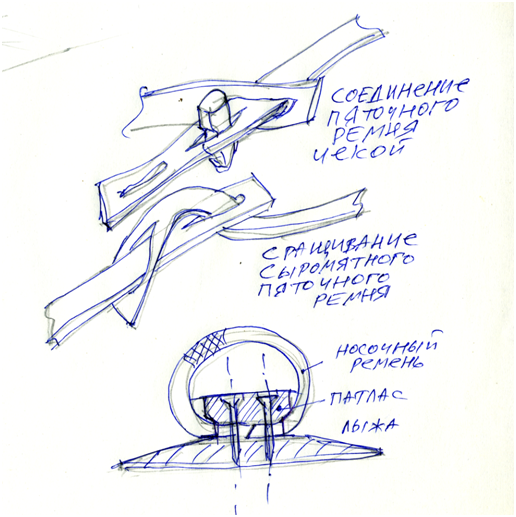 СОЕДИНЕНИЕ
ПЯТОЧНОГО
РЕМНЯ
ЧЕКОЙ
СРАЩИВАНИЕ
СЫРОМЯТНОГО
ПЯТОЧНОГО
РЕМНЯ
НОСОЧНЫЙ
РЕМЕНЬ
ПАТЛАС
ЛЫЖА